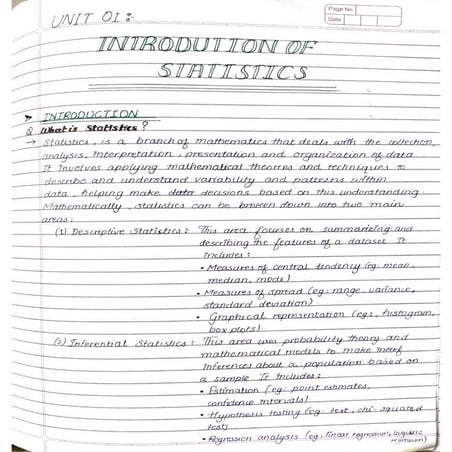 Page No.
Date
UNIT 01:-
INTRODUTION OF
STATISTICS
➤ INTRODUCTION
Q What is Statistics?
→ Statistics, is a branch of mathematics that deals with the collection,
analysis, Interpretation, presentation and organization of data.
It involves applying mathematical theories and techniques to
describe and understand variability and patterns within
data, helping make data decisions based on this understanding.
Mathematically, statistics can be broken down into two main
areas:
(1) Descriptive Statistics: This area focuses on summarizing and
describing the features of a dataset. It
Includes:
• Measures of central tendency (eg: mean,
median, mode)
• Measures of spread (eg: range, variance,
standard deviation)
• Graphical representation (eg:, histogram,
box plots).
(2) Inferential Statistics: This area uses probability theory and
mathematical models to make
Inferences about a population based on
a sample. It Includes:
• Estimation (eg: point estimates,
confidence intervals)
• Hypothesis testing (eg: test, chi-squared
test)
• Regression analysis (eg: linear regression, logistic